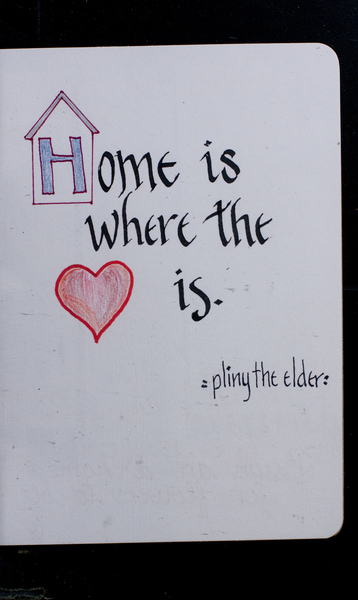 Home is
where the
is.
=plinythe elder: